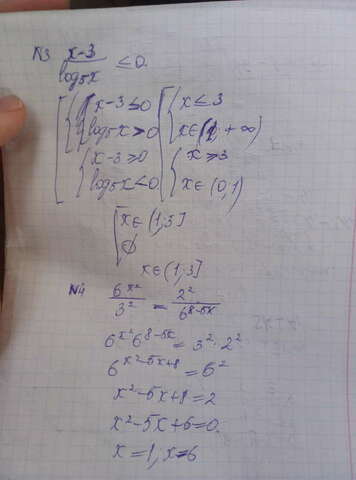 N3 x-3/log₅x ≤0.
[ { x-3≤0 [ { x≤3
{ log₅x>0 { x∈(1, +∞)
{ x-3≥0 { x≥3
{ log₅x<0 { x∈(0,1)
[ x∈(1;3]
∅
x∈(1;3]
N4 6^(x²)/3² = 2²/6^(8-5x)
6^(x²)6^(8-5x)=3²·2²
6^(x²-5x+8)=6²
x²-5x+8=2
x²-5x+6=0.
x=1, x=6